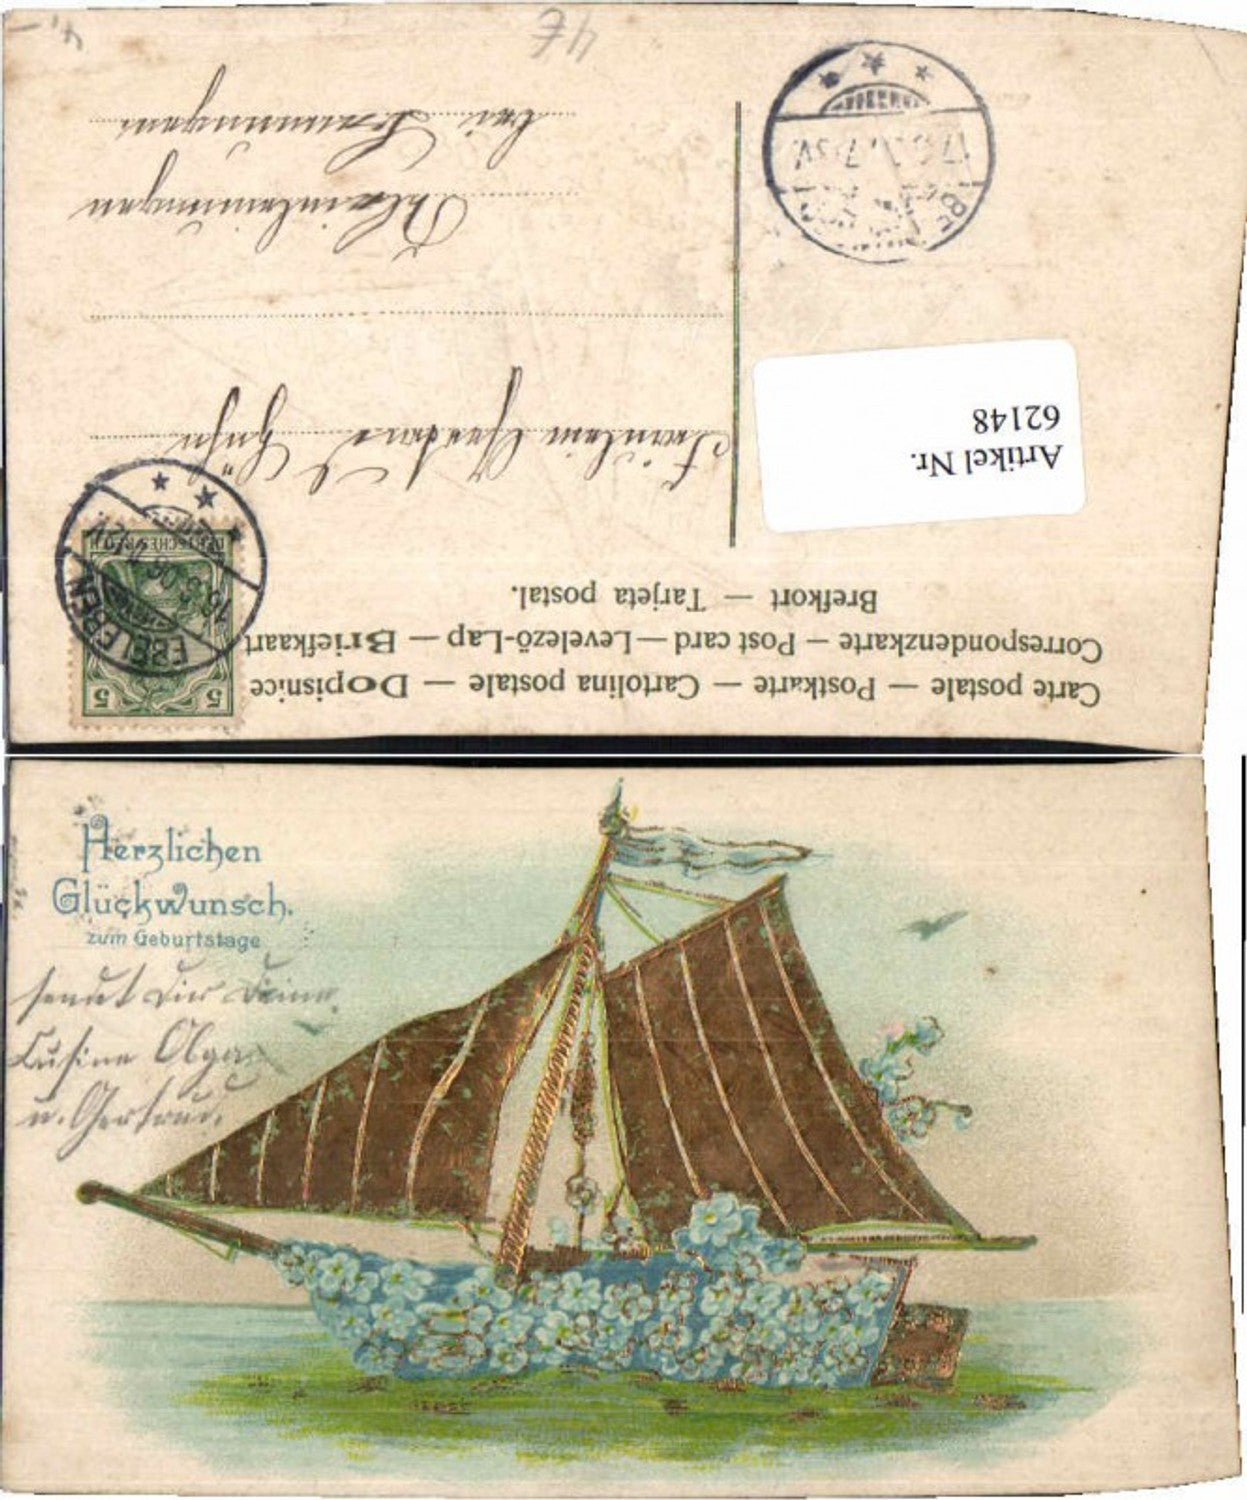 4,-
4€
Carte postale — Postkarte — Cartolina postale — Dopisnice
Correspondenzkarte — Post card — Levelező-Lap — Briefkaart
Brefkort — Tarjeta postal.
5 5
DEUTSCHES REICH
EBELEBEN
Artikel Nr.
62148
Fräulein Gertrud
bei
Herzlichen
Glückwunsch.
zum Geburtstage
sendet Dir Deine
Cusine Olga
u. Gertrud.